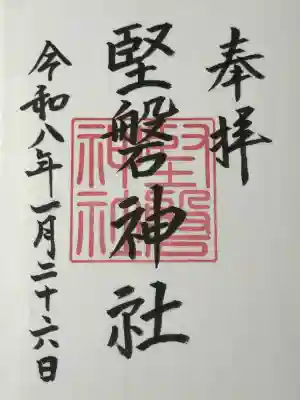 奉拝
堅磐神社
令和八年一月二十六日
堅磐神社